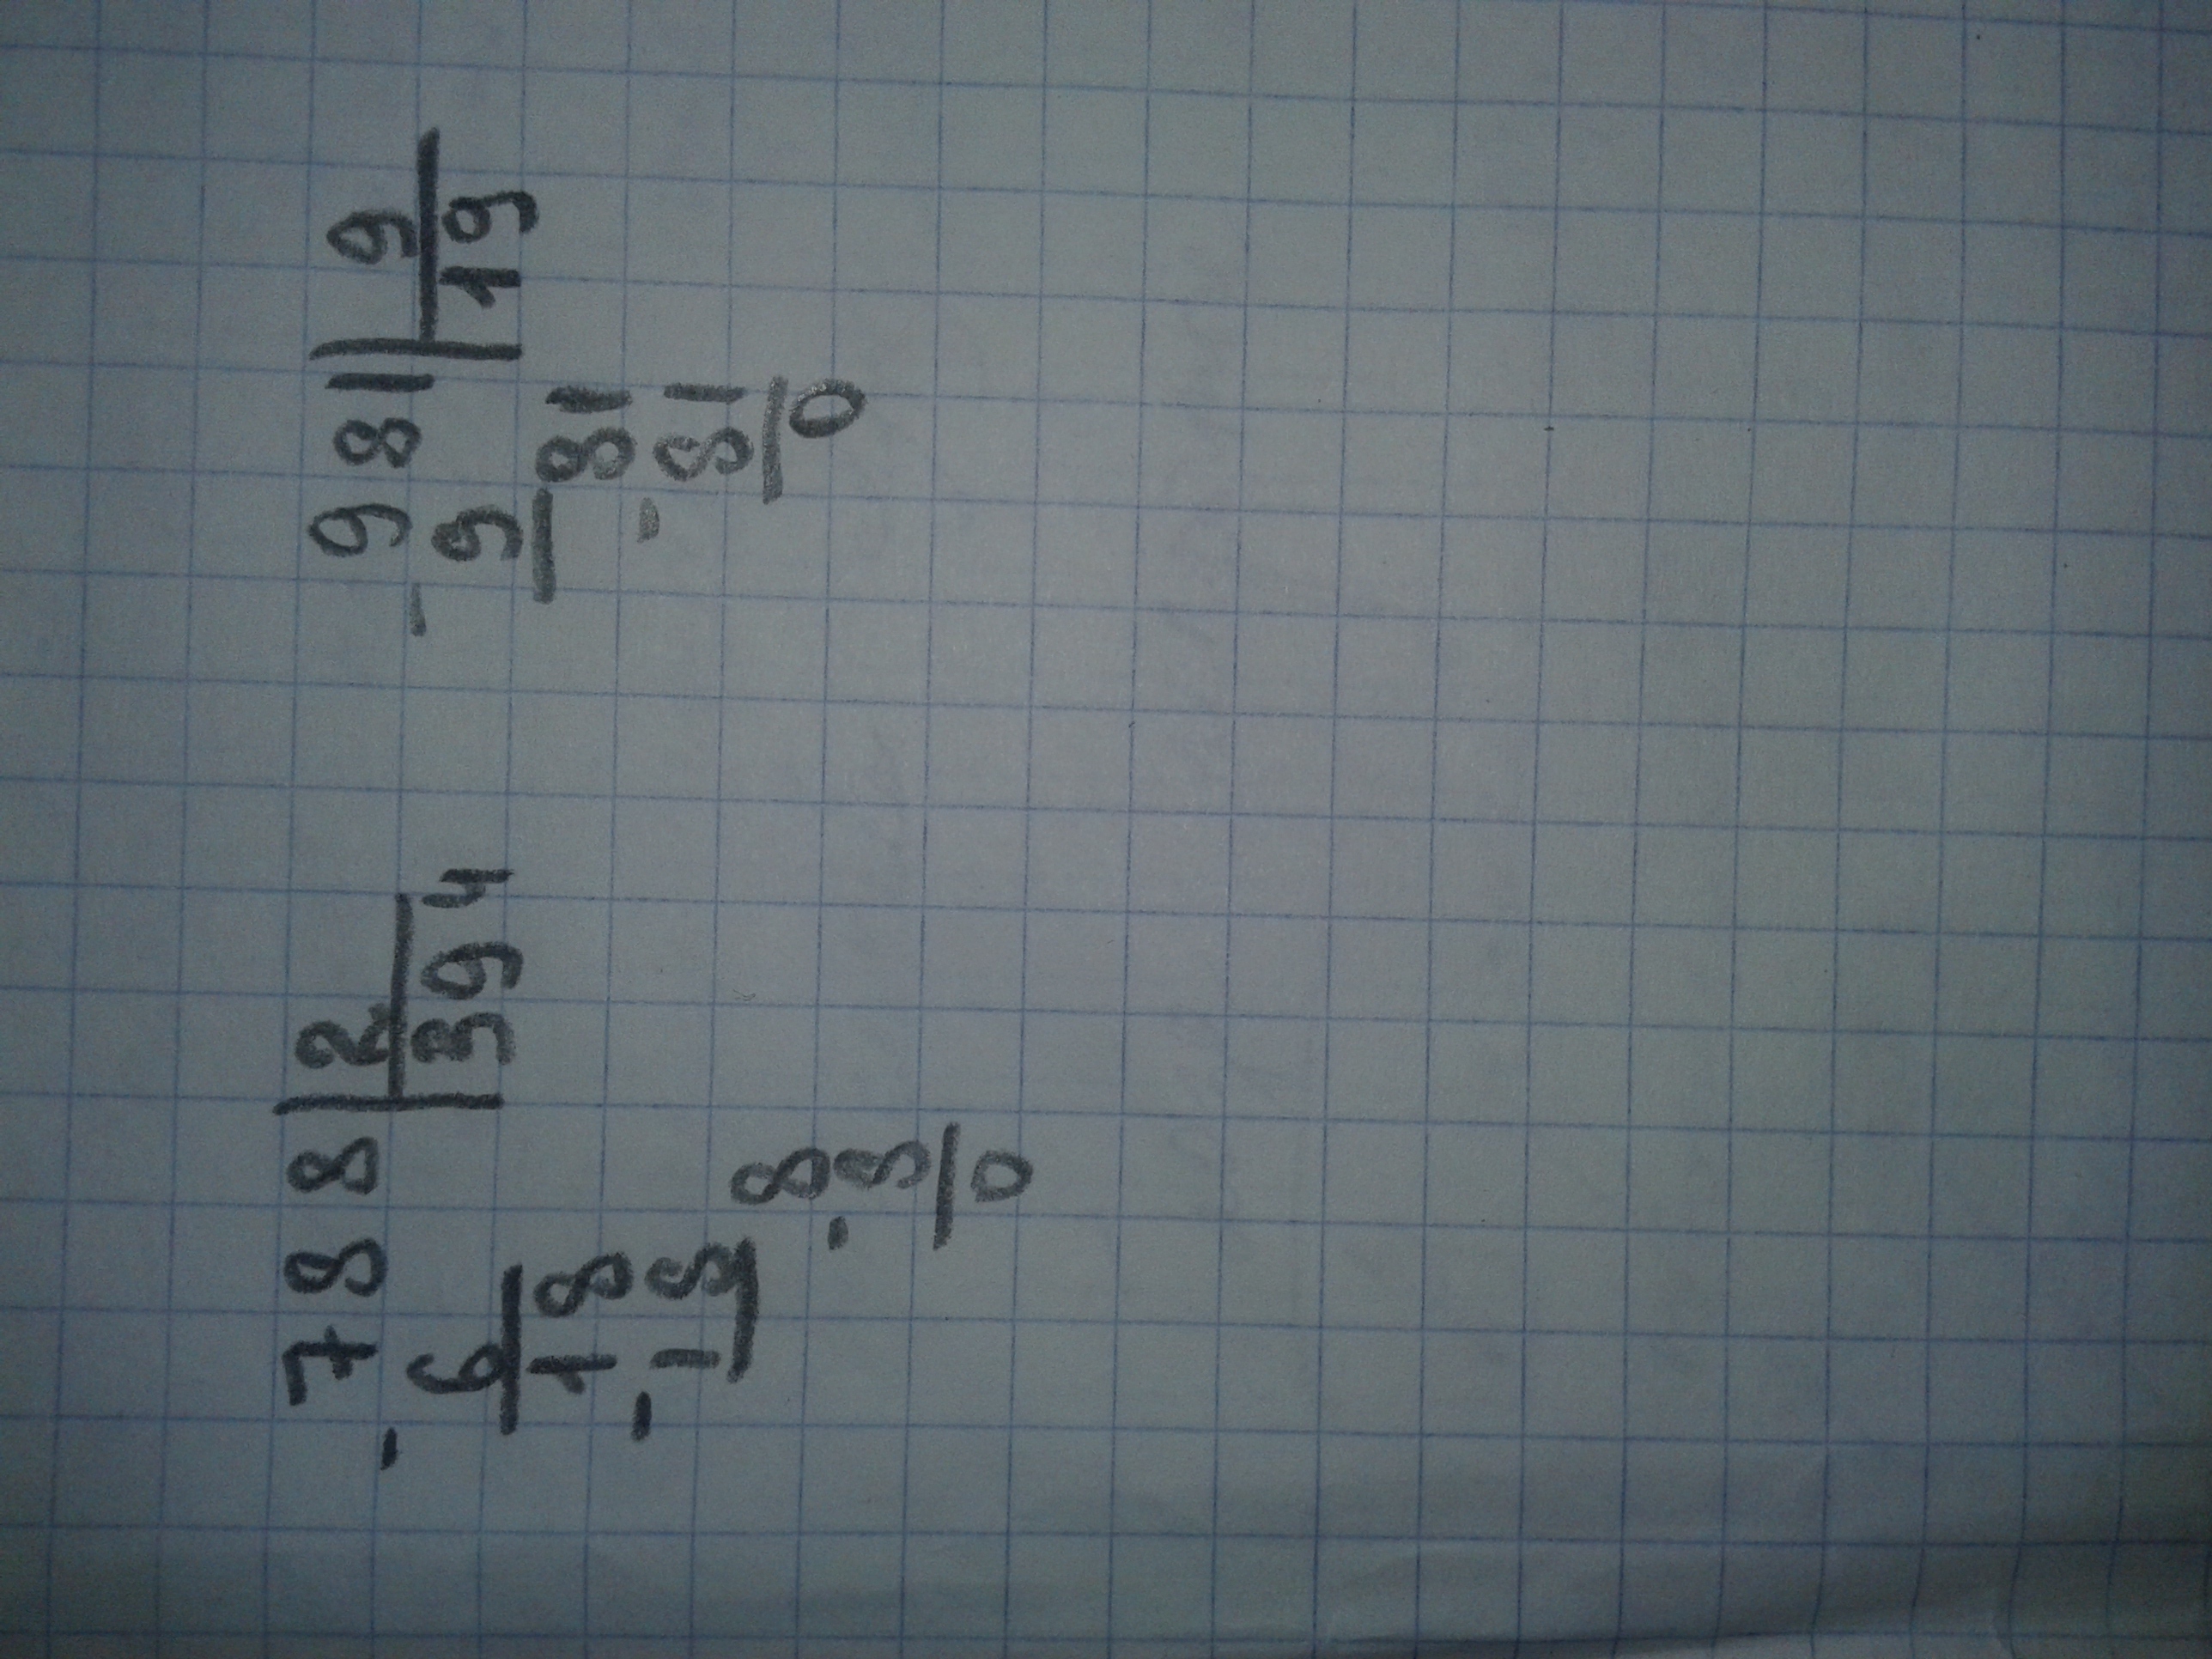 788|2
- 6 |394
18
- 18
8
- 8
0
981|9
- 9 |19
81
- 81
0